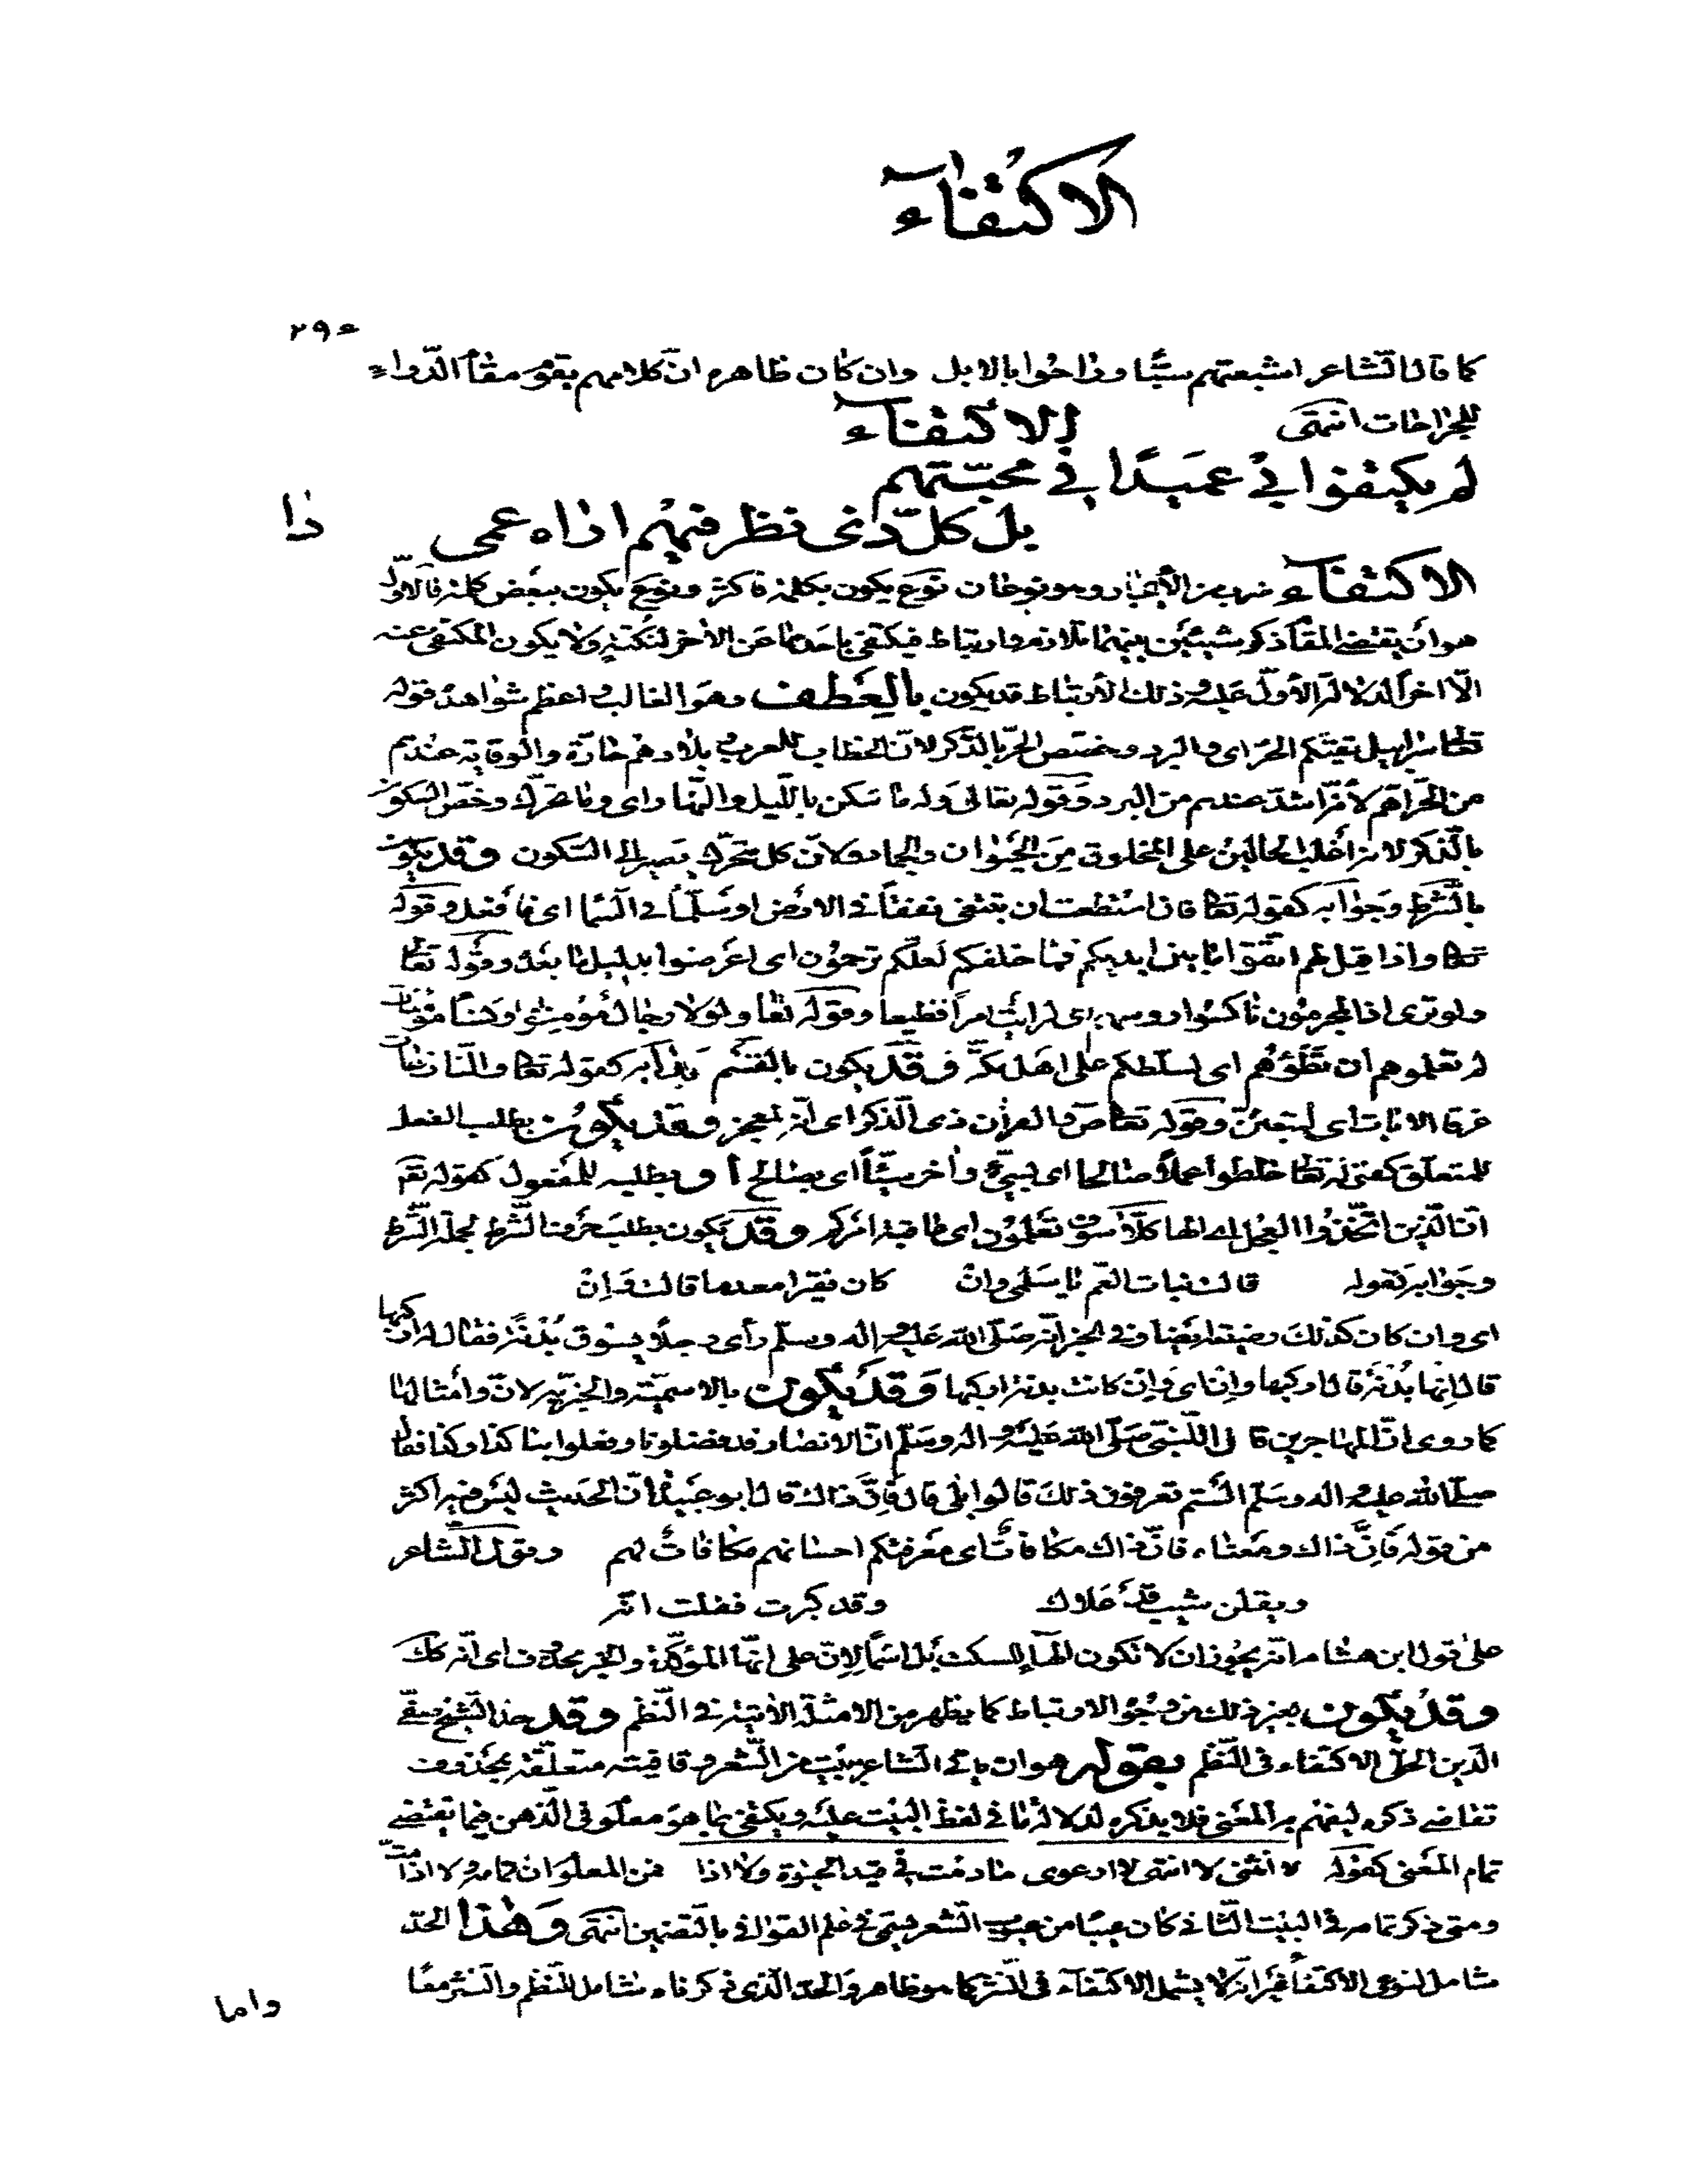 الاكتفاء
٢٩٥
كما قال الشاعر اشبعتهم سبًّا وراحوا بالابل وان كان ظاهره انّ كلامهم يقوم مقام الدّواء
للجراحات انتهى
الاكتفاء
لم يكتفوا في عميدًا في محبّتهم
بل كلّ ذى نظر فيهم اراه عمى
الاكتفاء ضرب من الأيجاز وهو نوعان نوع يكون بكلمة فاكثر ونوع يكون ببعض كلمة فالاول
هو أن يقتضى المقام ذكر شيئين بينهما تلازم وارتباط فيكتفى باحدهما عن الأخر لنكتة ولا يكون المكتفى عنه
الّا اخرًا لدلالة الأول عليه وذلك الأرتباط قد يكون بالعطف وهو الغالب واعظم شواهده قوله
تعالى سرابيل تقيكم الحر اى والبرد وخصّص الحرّ بالذّكر لانّ الخطاب للعرب وبلادهم حارّة والوقاية عندهم
من الحرّ اهم لأنّه اشدّ عندهم من البرد وقوله تعالى وله ما سكن بالليل والنّهار اى وما تحرّك وخصّ السكون
بالذّكر لانه أغلب الحالين على المخلوق من الحيوان والجماد ولانّ كل متحرّك يصير الى السّكون وقد يكون
بالشّرط وجوابه كقوله تعالى فان استطعت ان تبتغى نفقًا فى الارض او سلّمًا فى السّماء اى فافعل وقوله
تعالى واذا قيل لهم اتّقوا ما بين ايديكم وما خلفكم لعلّكم ترحمون اى اعرضوا بدليل ما بعده وقوله تعالى
ولو ترى اذ المجرمون ناكسوا رؤسهم اى لرأيت أمرًا فظيعا وقوله تعالى ولولا رجال مؤمنون ونساء مؤمنات
لم تعلموهم ان تطؤهم اى لسلّطكم على اهل مكّة وقد يكون بالقسم وجوابه كقوله تعالى والنّازعات
غرقا الايات اى لتبعثنّ وقوله تعالى ص والقرأن ذى الذّكر اى انّه لمعجز وقد يكون بطلب الفعل
للمتعلّق كقوله تعالى خلطوا عملاً صالحا اى بسيّئ وأخر سيّئاً اى بصالح أو بطلبه للمفعول كقوله تعالى
انّ الّذين اتّخذوا العجل اى الها كلّا سوف تعلمون اى عاقبة امركم وقد يكون بطلب حرف الشّرط لجملة الشّرط
وجوابه كقوله قالت بنات العمّ يا سلمى وانْ كان فقيرا معدما قالت وَاِنْ
اى وان كان كذلك رضيته ايضا وفى الخبر انّه صلّى الله عليه واله وسلّم رأى رجلًا يسوق بدنة فقال له اركبها
قال انها بدنة قال اركبها وان اى وان كانت بدنة اركبها وقد يكون بالاسميّة والخبريّة لانّ وأمثالها
كما روى انّ المهاجرين قالوا للنّبىّ صلّى الله عليه واله وسلّم انّ الانصار قد فضلونا وفعلوا بنا كذا وكذا فقال
صلّى الله عليه واله وسلّم ألستم تعرفون ذلك قالوا بلى قال فانّ ذاك قال ابو عبيد انّ الحديث ليس فيه اكثر
من قوله فانّ ذاك ومعناه فانّ ذاك مكافأة اى معرفتكم احسانهم مكافأة لهم وقول الشاعر
ويقلن شيب قد علاك وقد كبرت فقلت انّه
على قول ابن هشام انّه يجوز ان لا تكون الهاء للسكت بل اسمًا لانّ على انّها المؤكّدة والخبر محذوف اى انّه كذلك
وقد يكون بغير ذلك من وجوه الارتباط كما يظهر من الامثلة الأتية فى النّظم وقد حدّ الشّيخ صفى
الدّين الحلّى الاكتفاء فى النّظم بقوله هو ان يأتى الشاعر ببيت من الشعر وقافيته متعلّقة بمحذوف
تقاضى ذكره ليفهم به المعنى فلا يذكره لدلالة ما فى لفظ البيت عليه ويكتفى بما هو معلوم فى الذهن فيما يقتضى
تمام المعنى كقوله لا انثنى لا انتهى لا ارعوى ما دمت فى قيد الحيوة ولا اذا فمن المعلوم ان تمامه ولا اذا متّ
ومتى ذكر تمامه فى البيت الثّانى كان عيبًا من عيوب الشعر يسمّى فى علم القوافى بالتّضمين انتهى وهذا الحدّ
شامل لنوعى الاكتفاء غير انّه لا يشمل الاكتفاء فى النّثر كما هو ظاهر والحدّ الّذى ذكرناه شامل للنّظم والنّثر معًا
واما